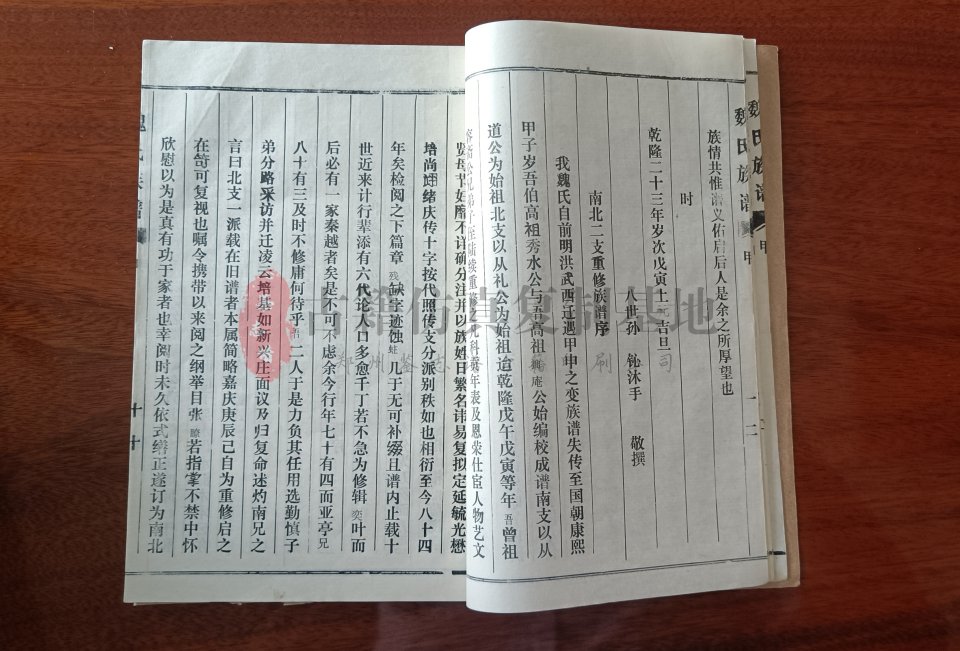 魏氏族谱
甲
魏氏族谱
甲
族情共惟谱义佑启后人是余之所厚望也
时
乾隆二十三年岁次戊寅十一月吉旦
八世孙 钺沐手 敬撰
南北二支重修族谱序
我魏氏自前明洪武西迁遇甲申之变族谱失传至国朝康熙
甲子岁吾伯高祖秀水公与吾高祖兴庵公始编校成谱南支以从
道公为始祖北支以从礼公为始祖迨乾隆戊午戊寅等年吾曾祖
年表及恩荣仕宦人物艺文
贤母节妇靡不详确分注并以族姓日繁名讳易复拟定延毓光懋
培尚诩绪庆传十字按代照传支分派别秩如也相衍至今八十四
年矣检阅之下篇章残缺字迹蚀蛀几于无可补缀且谱内止载十
世近来计行辈添有六代论人口多愈千丁若不急为修辑奕叶而
后必有一家秦越者矣是不可不虑余今行年七十有四而亚亭兄
八十有三及时不修庸何待乎吾二人于是力负其任用选勤慎子
弟分路采访并迁凌云培基如新兴庄面议及归复命述灼南兄之
言曰北支一派载在旧谱者本属简略嘉庆庚辰己自为重修启之
在笥可复视也嘱令携带以来阅之纲举目张瞭若指掌不禁中怀
欣慰以为是真有功于家者也幸阅时未久依式缮正遂订为南北
古籍仿真复制基地